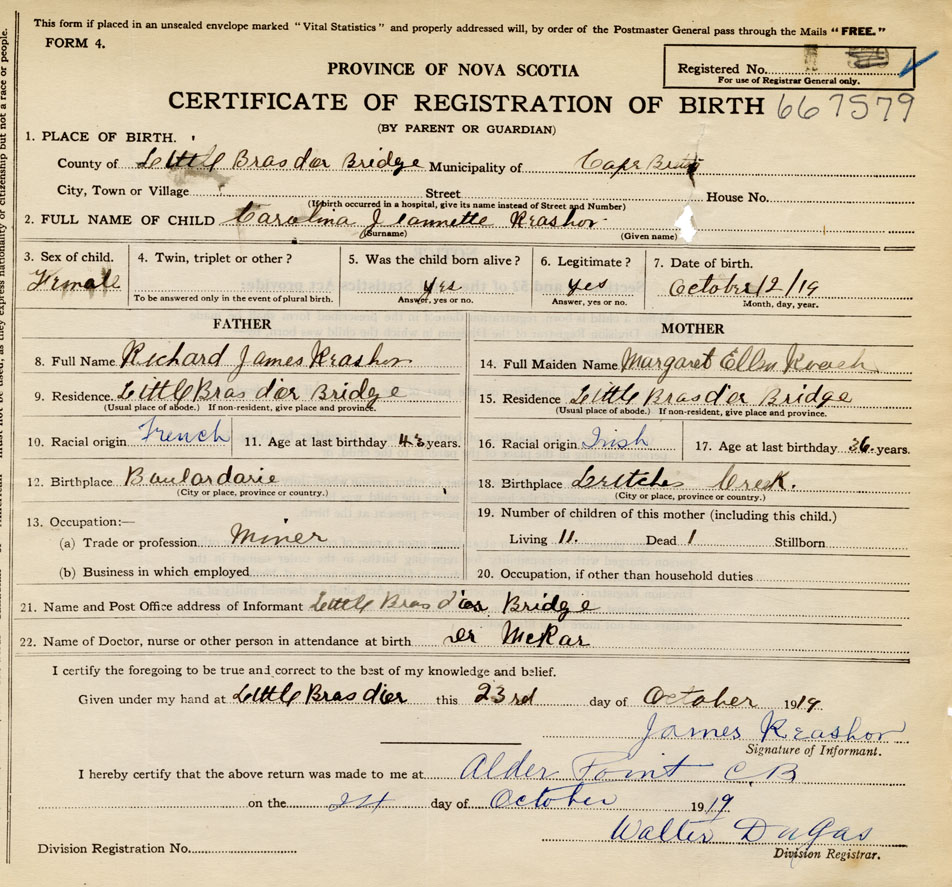 This form if placed in an unsealed envelope marked "Vital Statistics" and properly addressed will, by order of the Postmaster General pass through the Mails "FREE."
FORM 4.
Registered No.
For use of Registrar General only.
PROVINCE OF NOVA SCOTIA
CERTIFICATE OF REGISTRATION OF BIRTH 667579
(BY PARENT OR GUARDIAN)
1. PLACE OF BIRTH.
County of Little Bras dor Bridge Municipality of Cape Breton
City, Town or Village Street House No.
(If birth occurred in a hospital, give its name instead of Street and Number)
2. FULL NAME OF CHILD Carolina Jeannette Keashor
(Surname) (Given name)
3. Sex of child. 4. Twin, triplet or other? 5. Was the child born alive? 6. Legitimate? 7. Date of birth.
Female yes yes October 12/19
To be answered only in the event of plural birth. Answer, yes or no. Answer, yes or no. Month, day, year.
FATHER MOTHER
8. Full Name Richard James Keashor 14. Full Maiden Name Margaret Ellen
9. Residence. Little Bras dor Bridge 15. Residence Little Bras dor Bridge
(Usual place of abode.) If non-resident, give place and province. (Usual place of abode.) If non-resident, give place and province.
10. Racial origin French 11. Age at last birthday years. 16. Racial origin Irish 17. Age at last birthday 36 years.
12. Birthplace Boulardarie 18. Birthplace Leitches Creek.
(City or place, province or country.) (City or place, province or country.)
13. Occupation:— 19. Number of children of this mother (including this child.)
(a) Trade or profession Miner Living 11. Dead 1 Stillborn
(b) Business in which employed 20. Occupation, if other than household duties
21. Name and Post Office address of Informant Little Bras dor Bridge
22. Name of Doctor, nurse or other person in attendance at birth
I certify the foregoing to be true and correct to the best of my knowledge and belief.
Given under my hand at Little Bras dor this 23rd day of October 1919
James Keashor
Signature of Informant.
I hereby certify that the above return was made to me at Alder Point C B
on the 24 day of October 1919
Walter DuGas
Division Registrar.
Division Registration No.